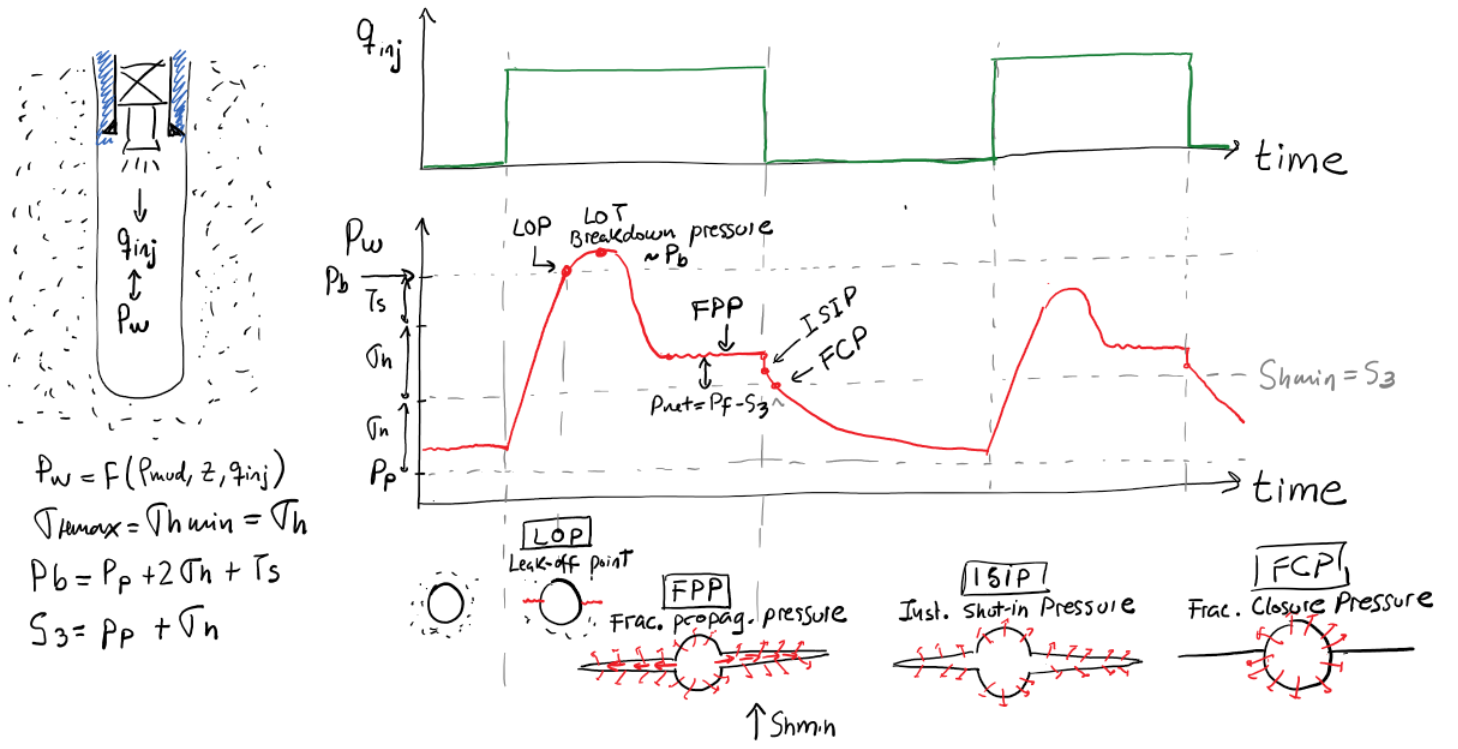 q inj
time
q inj
Pw
Pw = F(Pmud, z, qinj)
σHmax = σhmin = σh
Pb = Pp + 2σh + Ts
S3 = Pp + σh
Pw
LOP
LOT
Breakdown pressure
~ Pb
Pb
Ts
σh
σh
Pp
FPP
ISIP
FCP
Pnet = Pf - S3
Shmin = S3
time
LOP
Leak-off point
FPP
Frac. propag. pressure
ISIP
Inst. Shut-in Pressure
FCP
Frac. Closure Pressure
↑ Shmin